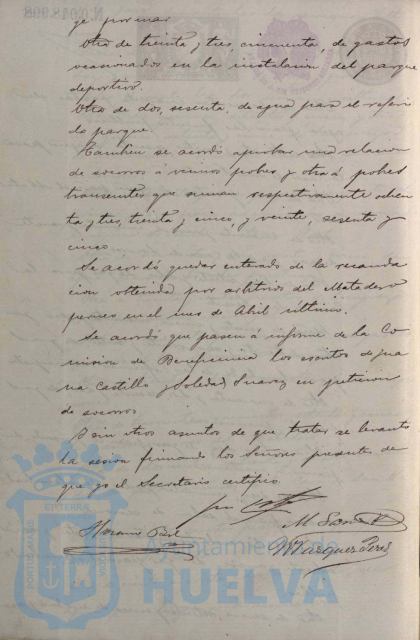 ge por mar
Otra de treinta y tres, cincuenta, de gastos
ocasionados en la instalacion del parque
deportivo.
Otra de dos, sesenta, de agua para el referi
do parque.
Tambien se acordó aprobar una relacion
de socorros á vecinos pobres y otra á pobres
transeuntes que suman respectivamente ochen
ta y tres, treinta y cinco, y veinte, sesenta y
cinco
Se acordó quedar enterado de la recauda
cion obtenida por arbitrios del Matadero
en el mes de Abril último.
Se acordó que pasen á informe de la Co
mision de Beneficencia los escritos de Jua
na Castillo y Soledad Suarez en peticion
de socorros
Y sin otros asuntos de que tratar se levantó
la sesion firmando los Señores presentes de
que yo el Secretario certifico.
Marquez Perez
Ayuntamiento de
HUELVA